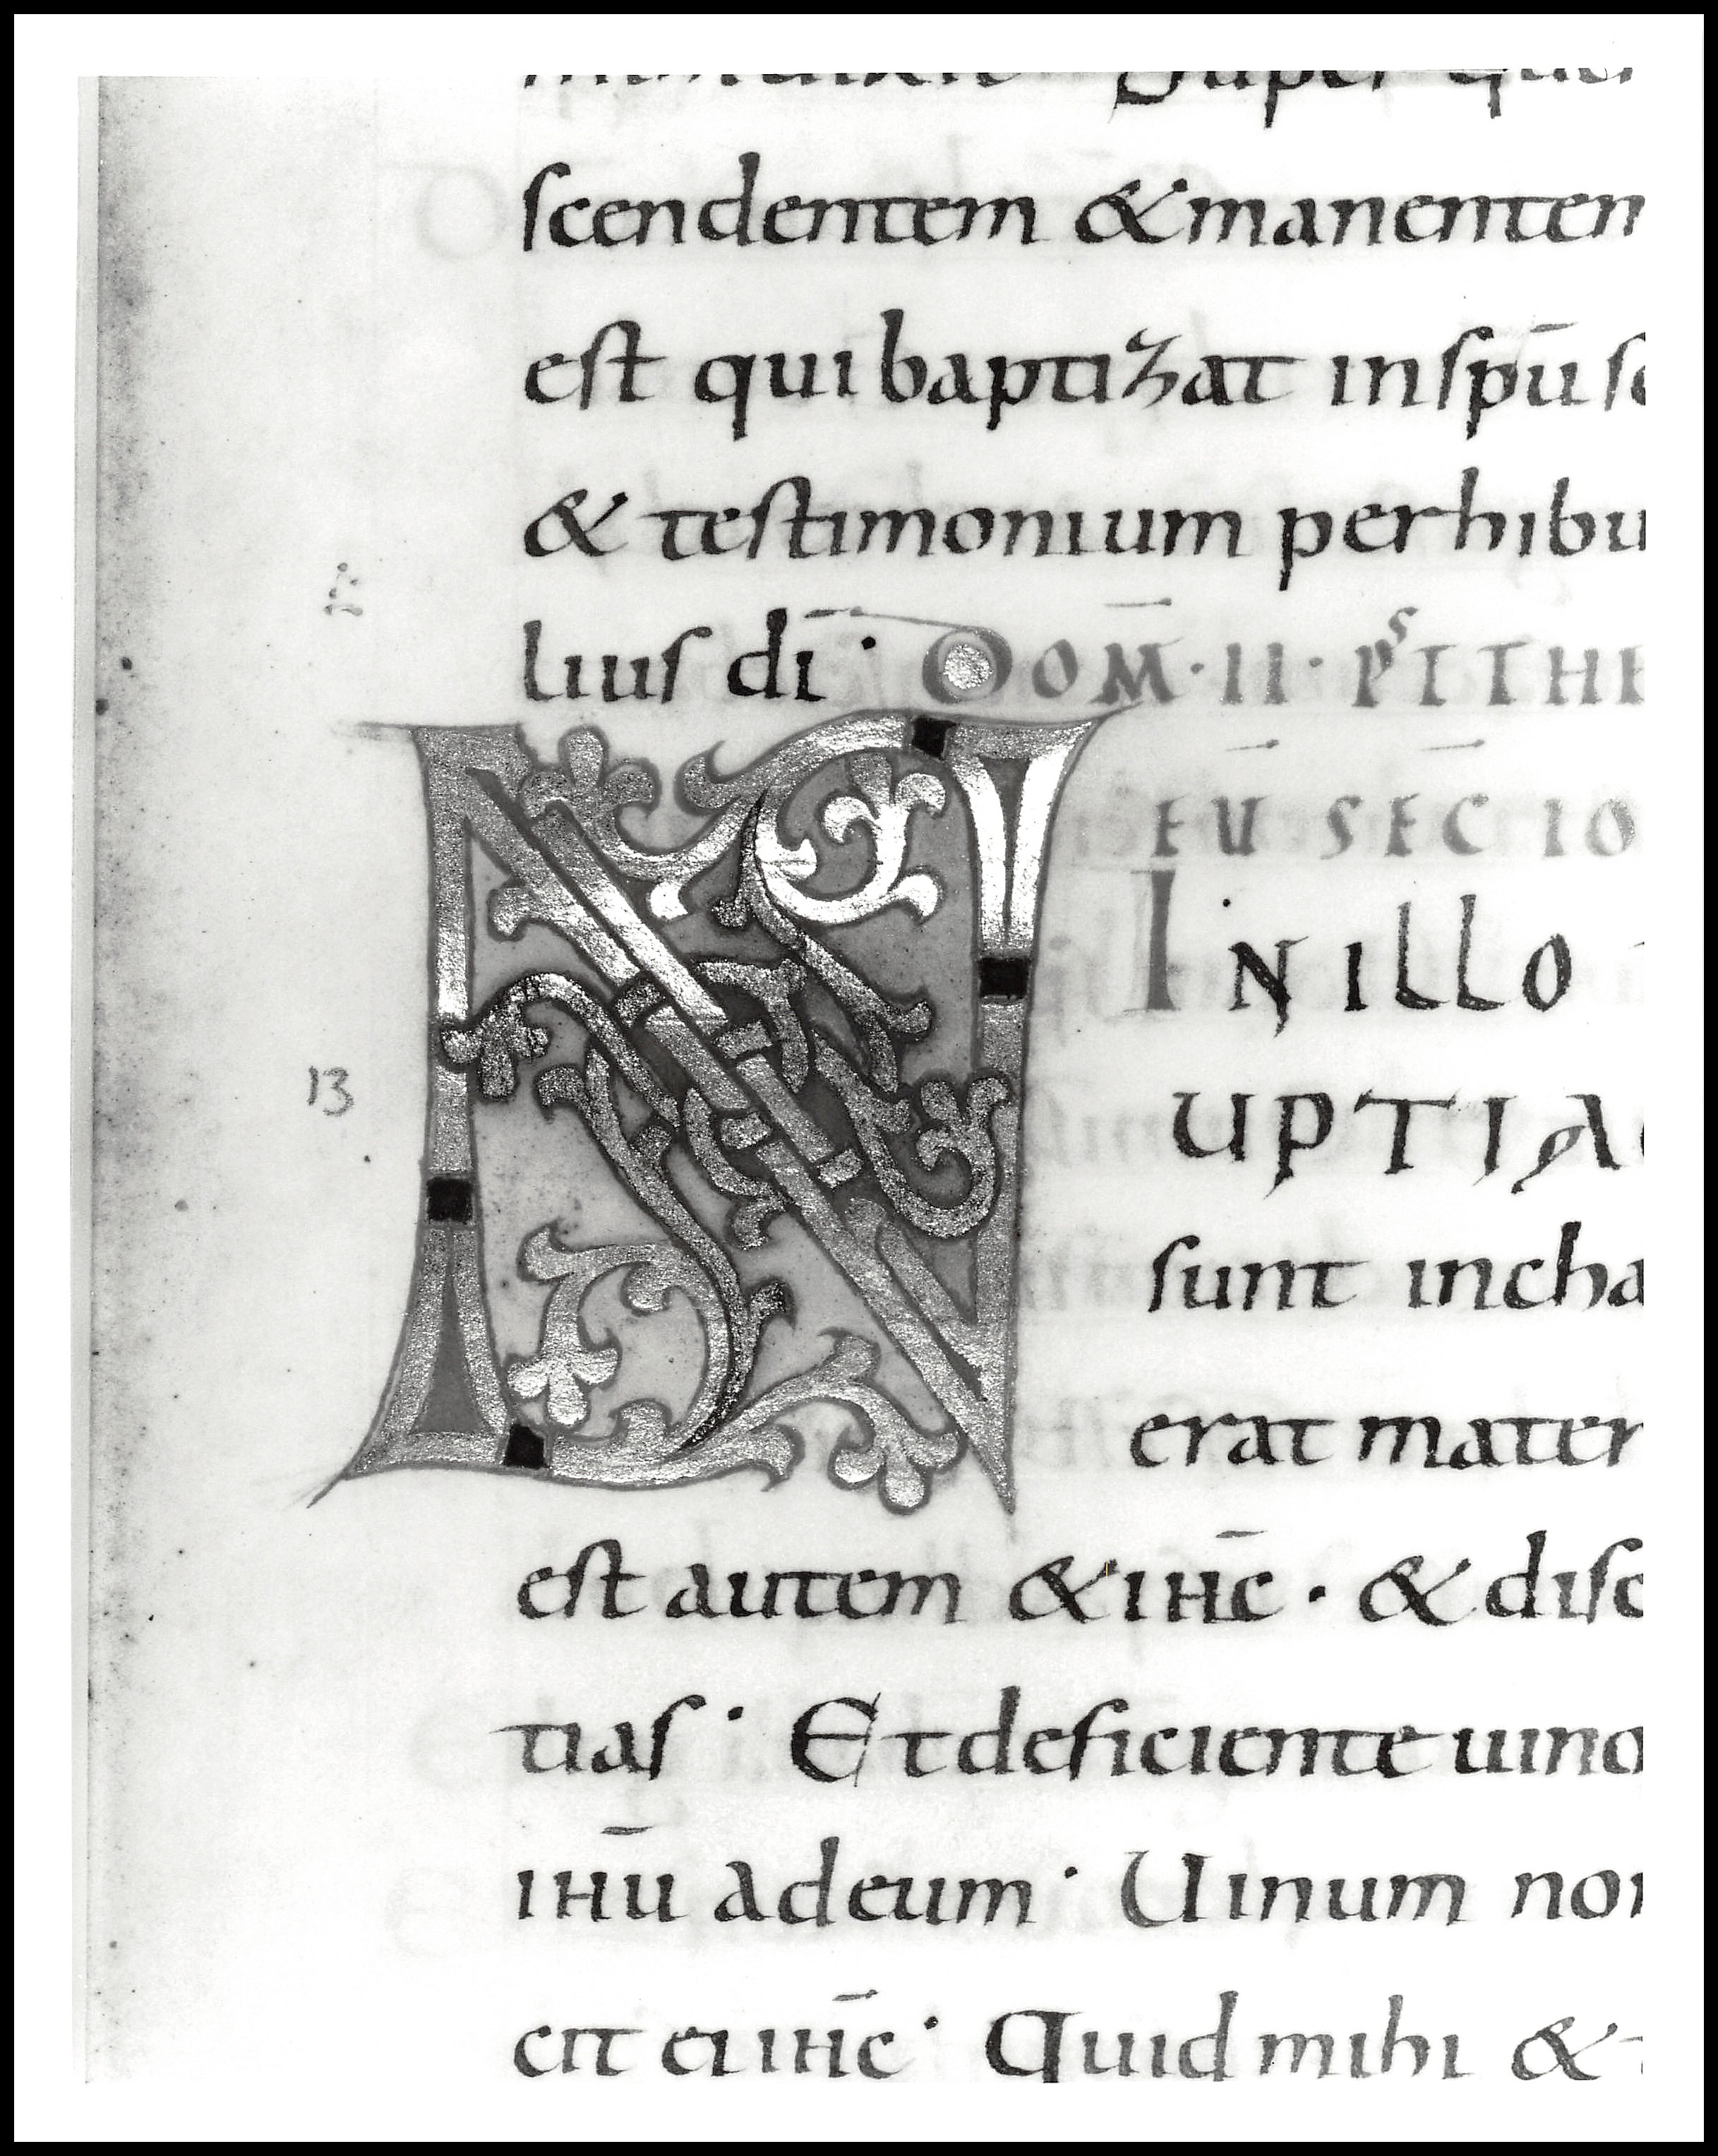 scendentem & manentem
est qui baptizat in sp̄u sc
& testimonium perhibu
lius dī · DOM̄·II·PˢT THE
EŪ SEC̄ IO
IN ILLO
13
N UPTIAE
sunt in cha
erat mater
est autem & ihc̄ · & disc
tias · Et deficiente uino
ihū ad eum · Uinum non
cit ei ihc̄ · Quid mihi &